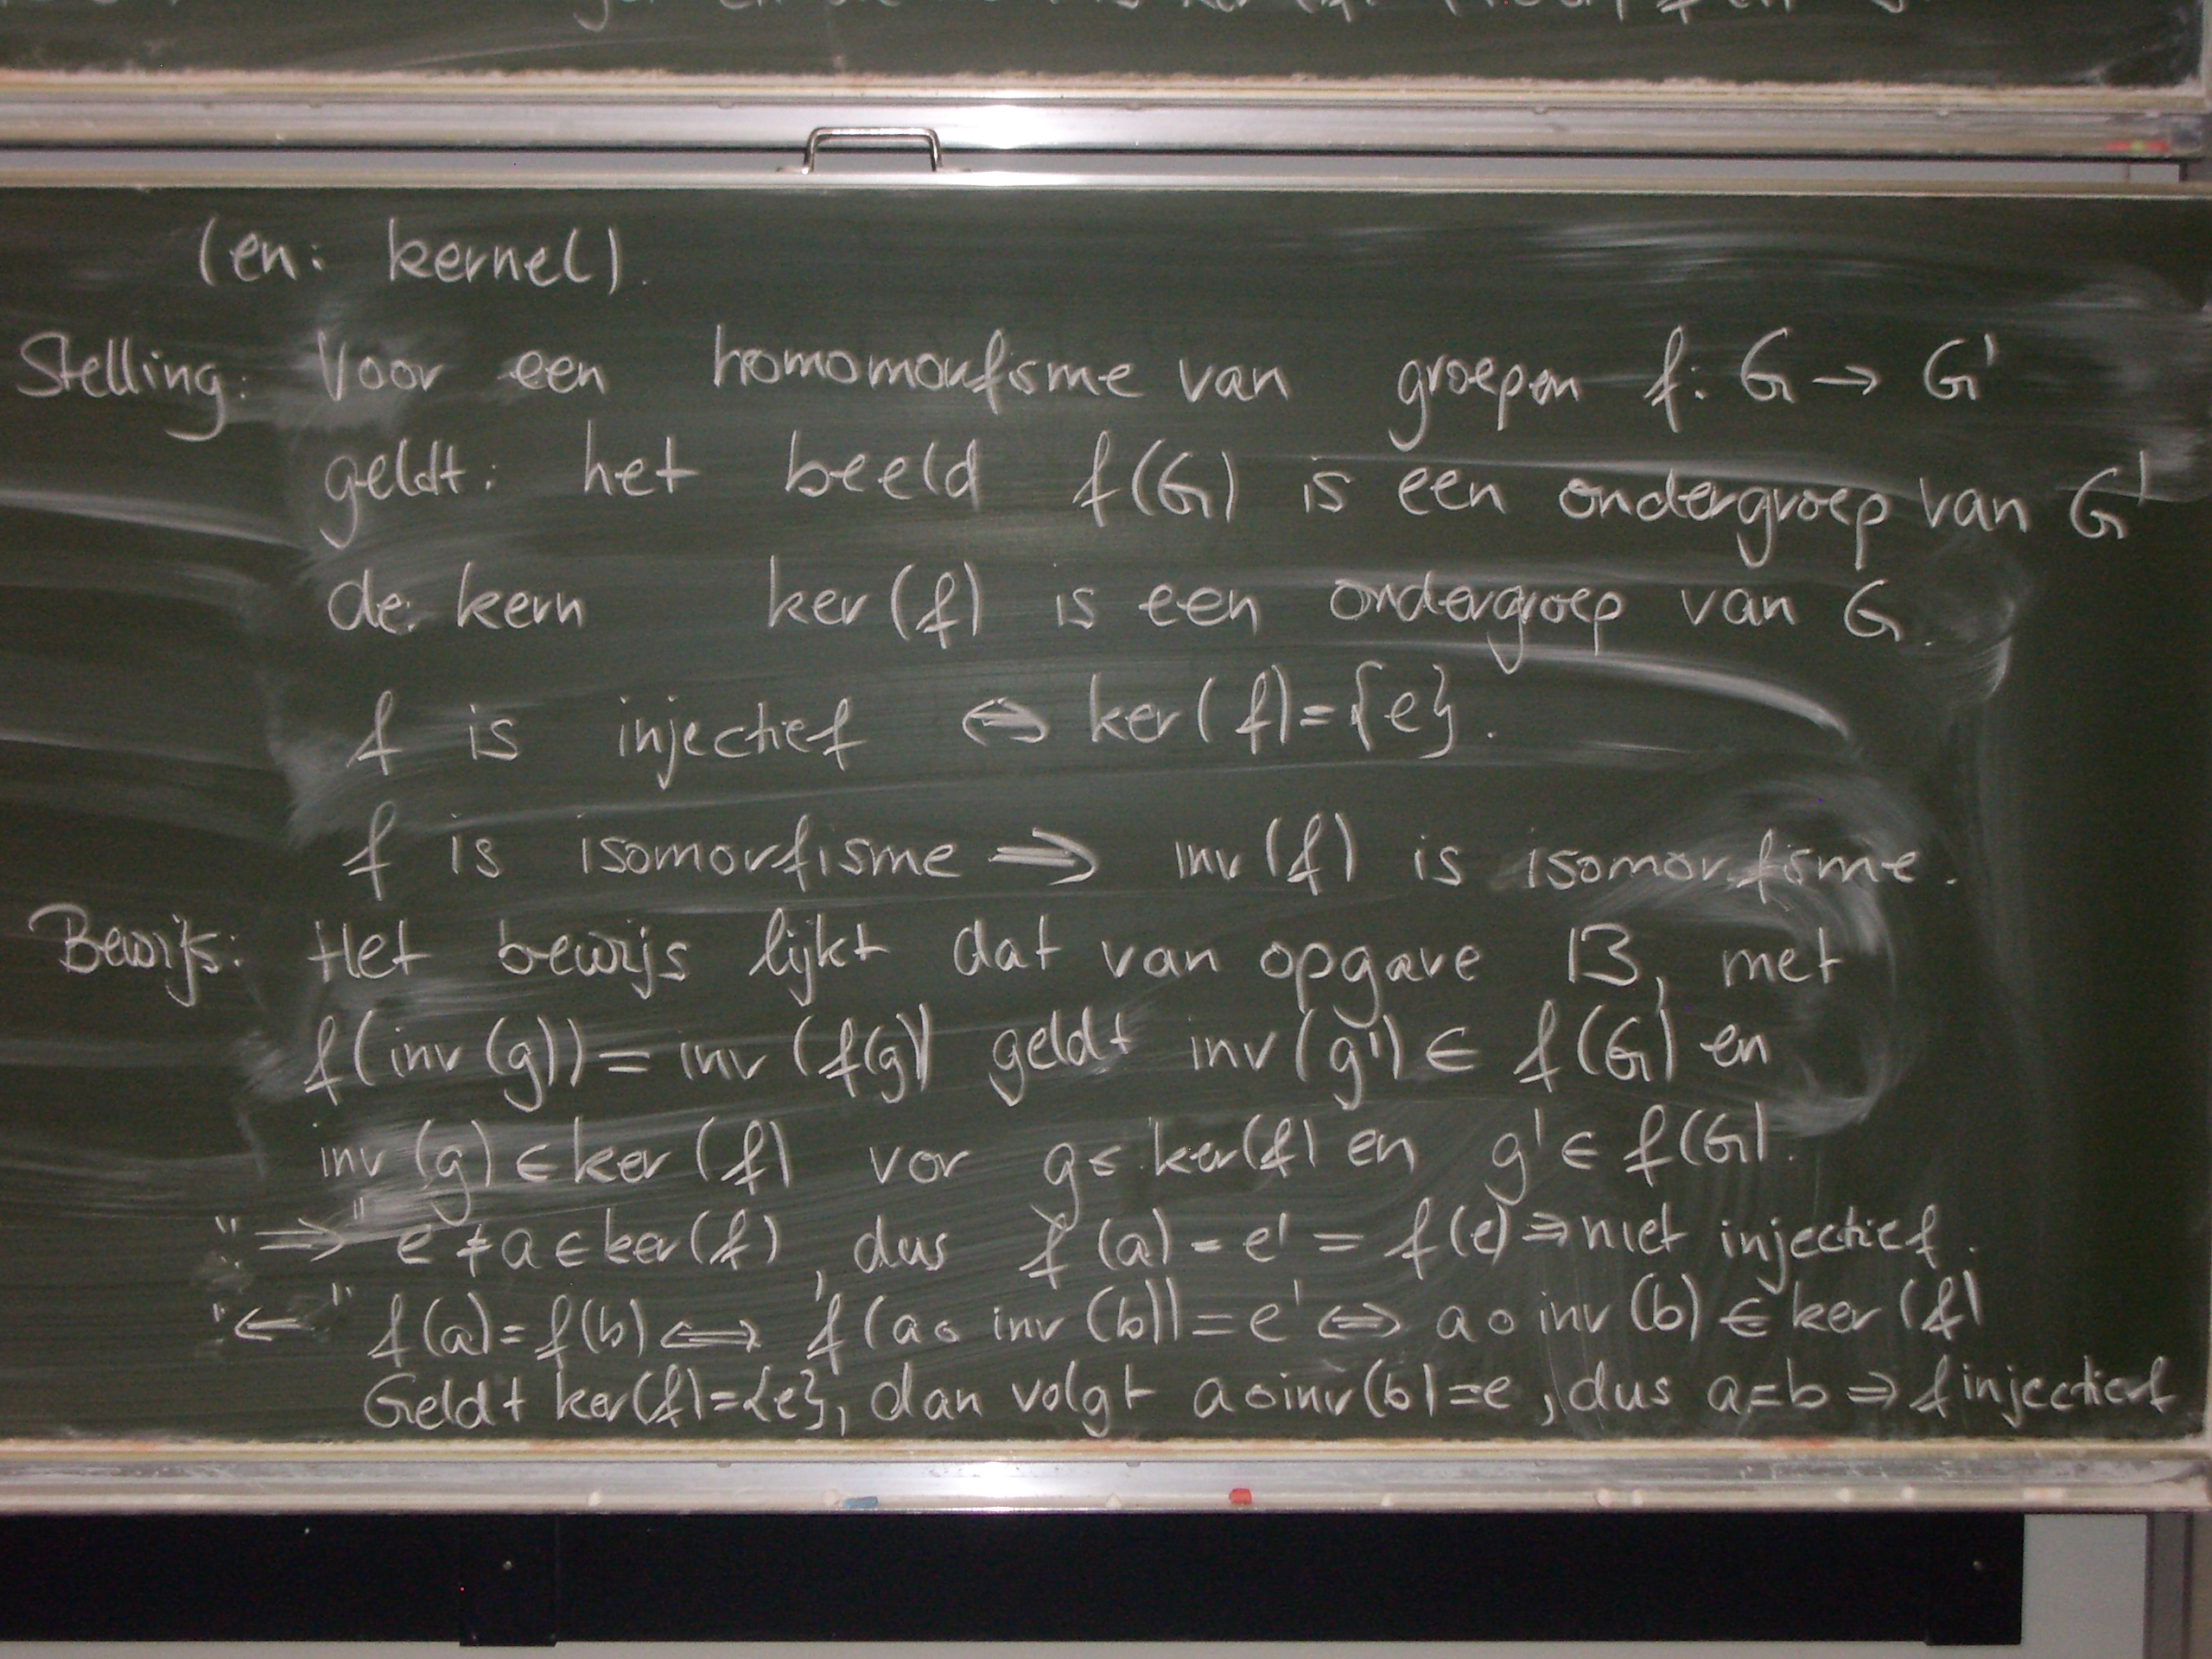 (en: kernel).
Stelling: Voor een homomorfisme van groepen f: G → G'
geldt: het beeld f(G) is een ondergroep van G'
de kern ker(f) is een ondergroep van G.
f is injectief ⇔ ker(f)={e}.
f is isomorfisme ⇒ inv(f) is isomorfisme.
Bewijs: Het bewijs lijkt dat van opgave 13, met
f(inv(g)) = inv(f(g)) geldt inv(g') ∈ f(G) en
inv(g) ∈ ker(f) vor g ∈ ker(f) en g' ∈ f(G).
"⇒" e ≠ a ∈ ker(f), dus f(a) = e' = f(e) ⇒ niet injectief.
"⇐" f(a)=f(b) ⇔ f(a∘inv(b)) = e' ⇔ a∘inv(b) ∈ ker(f)
Geldt ker(f)={e}, dan volgt a∘inv(b)=e, dus a=b ⇒ f injectief